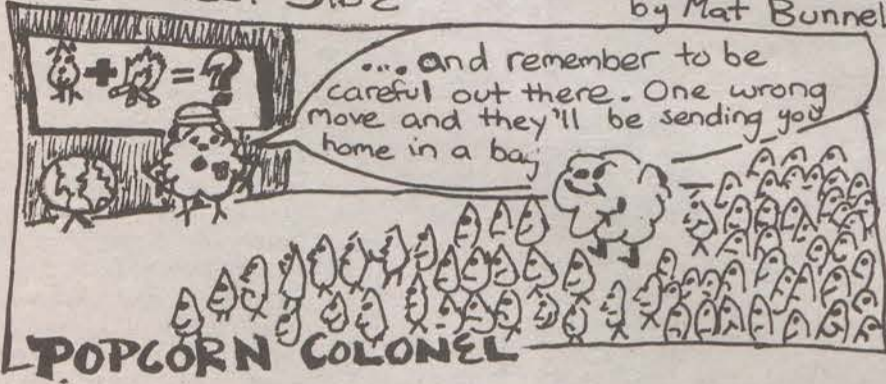 by Mat Bunnel
+ = ?
... and remember to be
careful out there. One wrong
move and they'll be sending you
home in a bag
POPCORN COLONEL